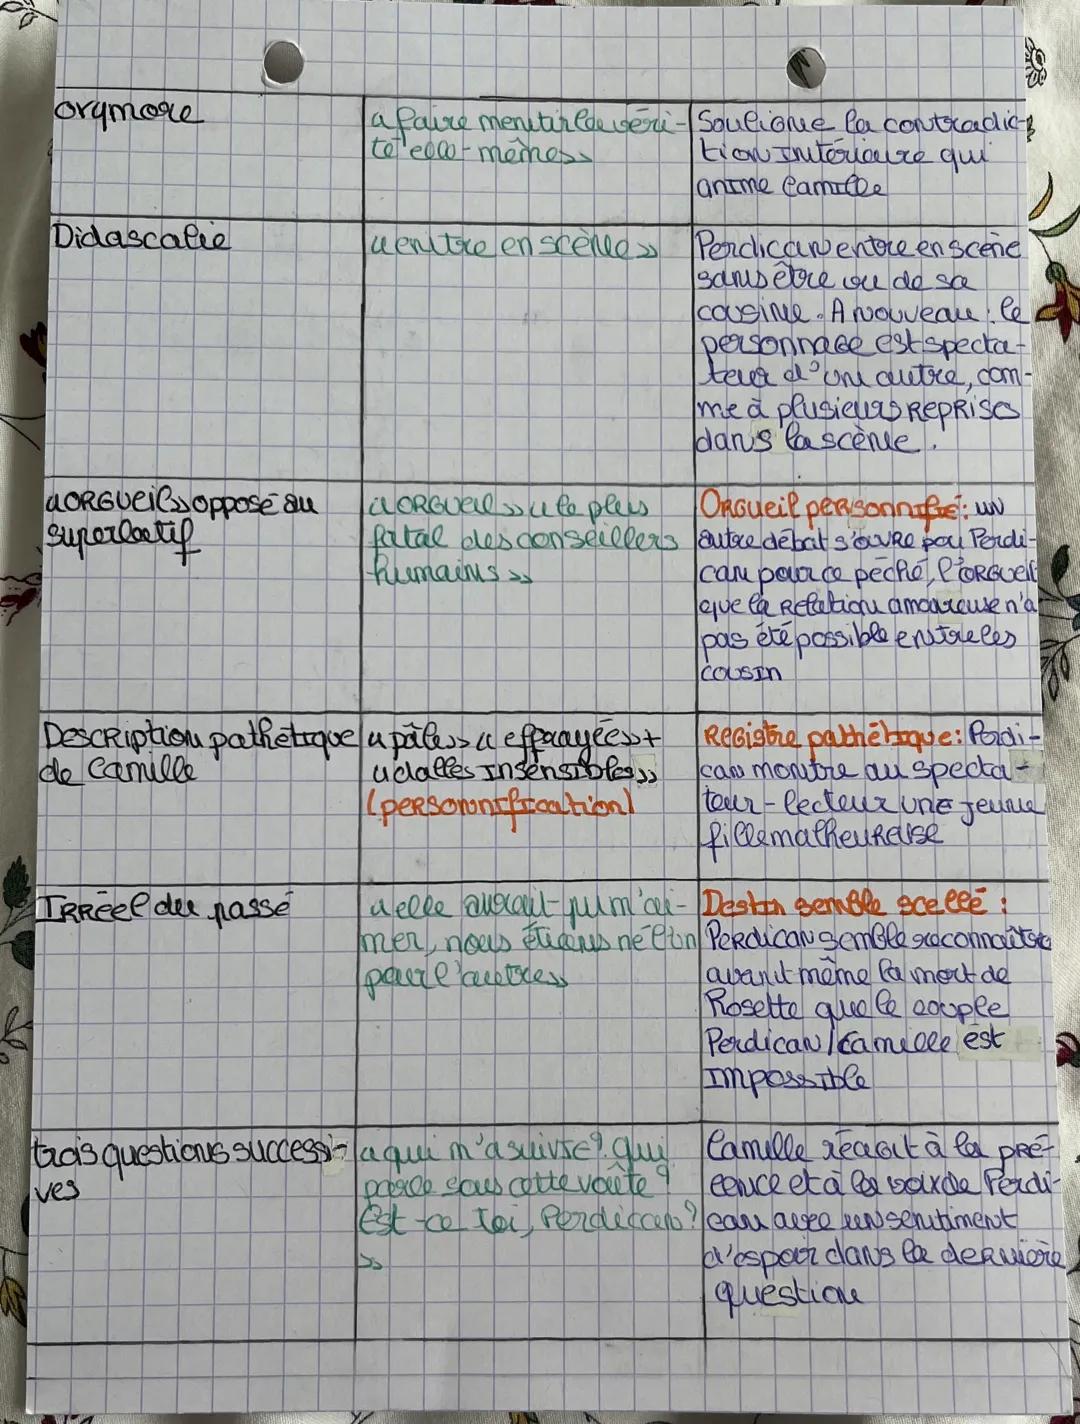 orymore
« faire mentir la véri-
té elle-même »
Souligne la contradic-
tion intérieure qui
anime Camille
Didascalie
« entre en scène »
Perdican entre en scène
sans être vu de sa
cousine. A nouveau : le
personnage est specta-
teur d'une autre, com-
me à plusieurs reprises
dans la scène.
« ORGUEIL » opposé au
superlatif
« ORGUEIL » « le plus
fatal des conseillers
humains »
Orgueil personnifié : un
autre débat s'ouvre pour Perdi-
can pour ce péché, l'ORGUEIL
que la relation amoureuse n'a
pas été possible entre les
cousin
Description pathétique
de Camille
« pâle » « effrayée » +
« dalles insensibles »
(personnification)
Registre pathétique : Perdi-
can montre au specta-
teur-lecteur une jeune
fille malheureuse
IRRéel du passé
« elle aurait pu m'ai-
mer, nous étions né l'un
pour l'autre »
Destin semble scellé :
Perdican semble reconnaître
avant même la mort de
Rosette que le couple
Perdican/Camille est
impossible
trois questions successi-
ves
« qui m'a suivie? qui
parle sous cette voûte?
Est-ce toi, Perdican?
»
Camille réagit à la pré-
cence et à la voix de Perdi-
can avec un sentiment
d'espoir dans la dernière
question